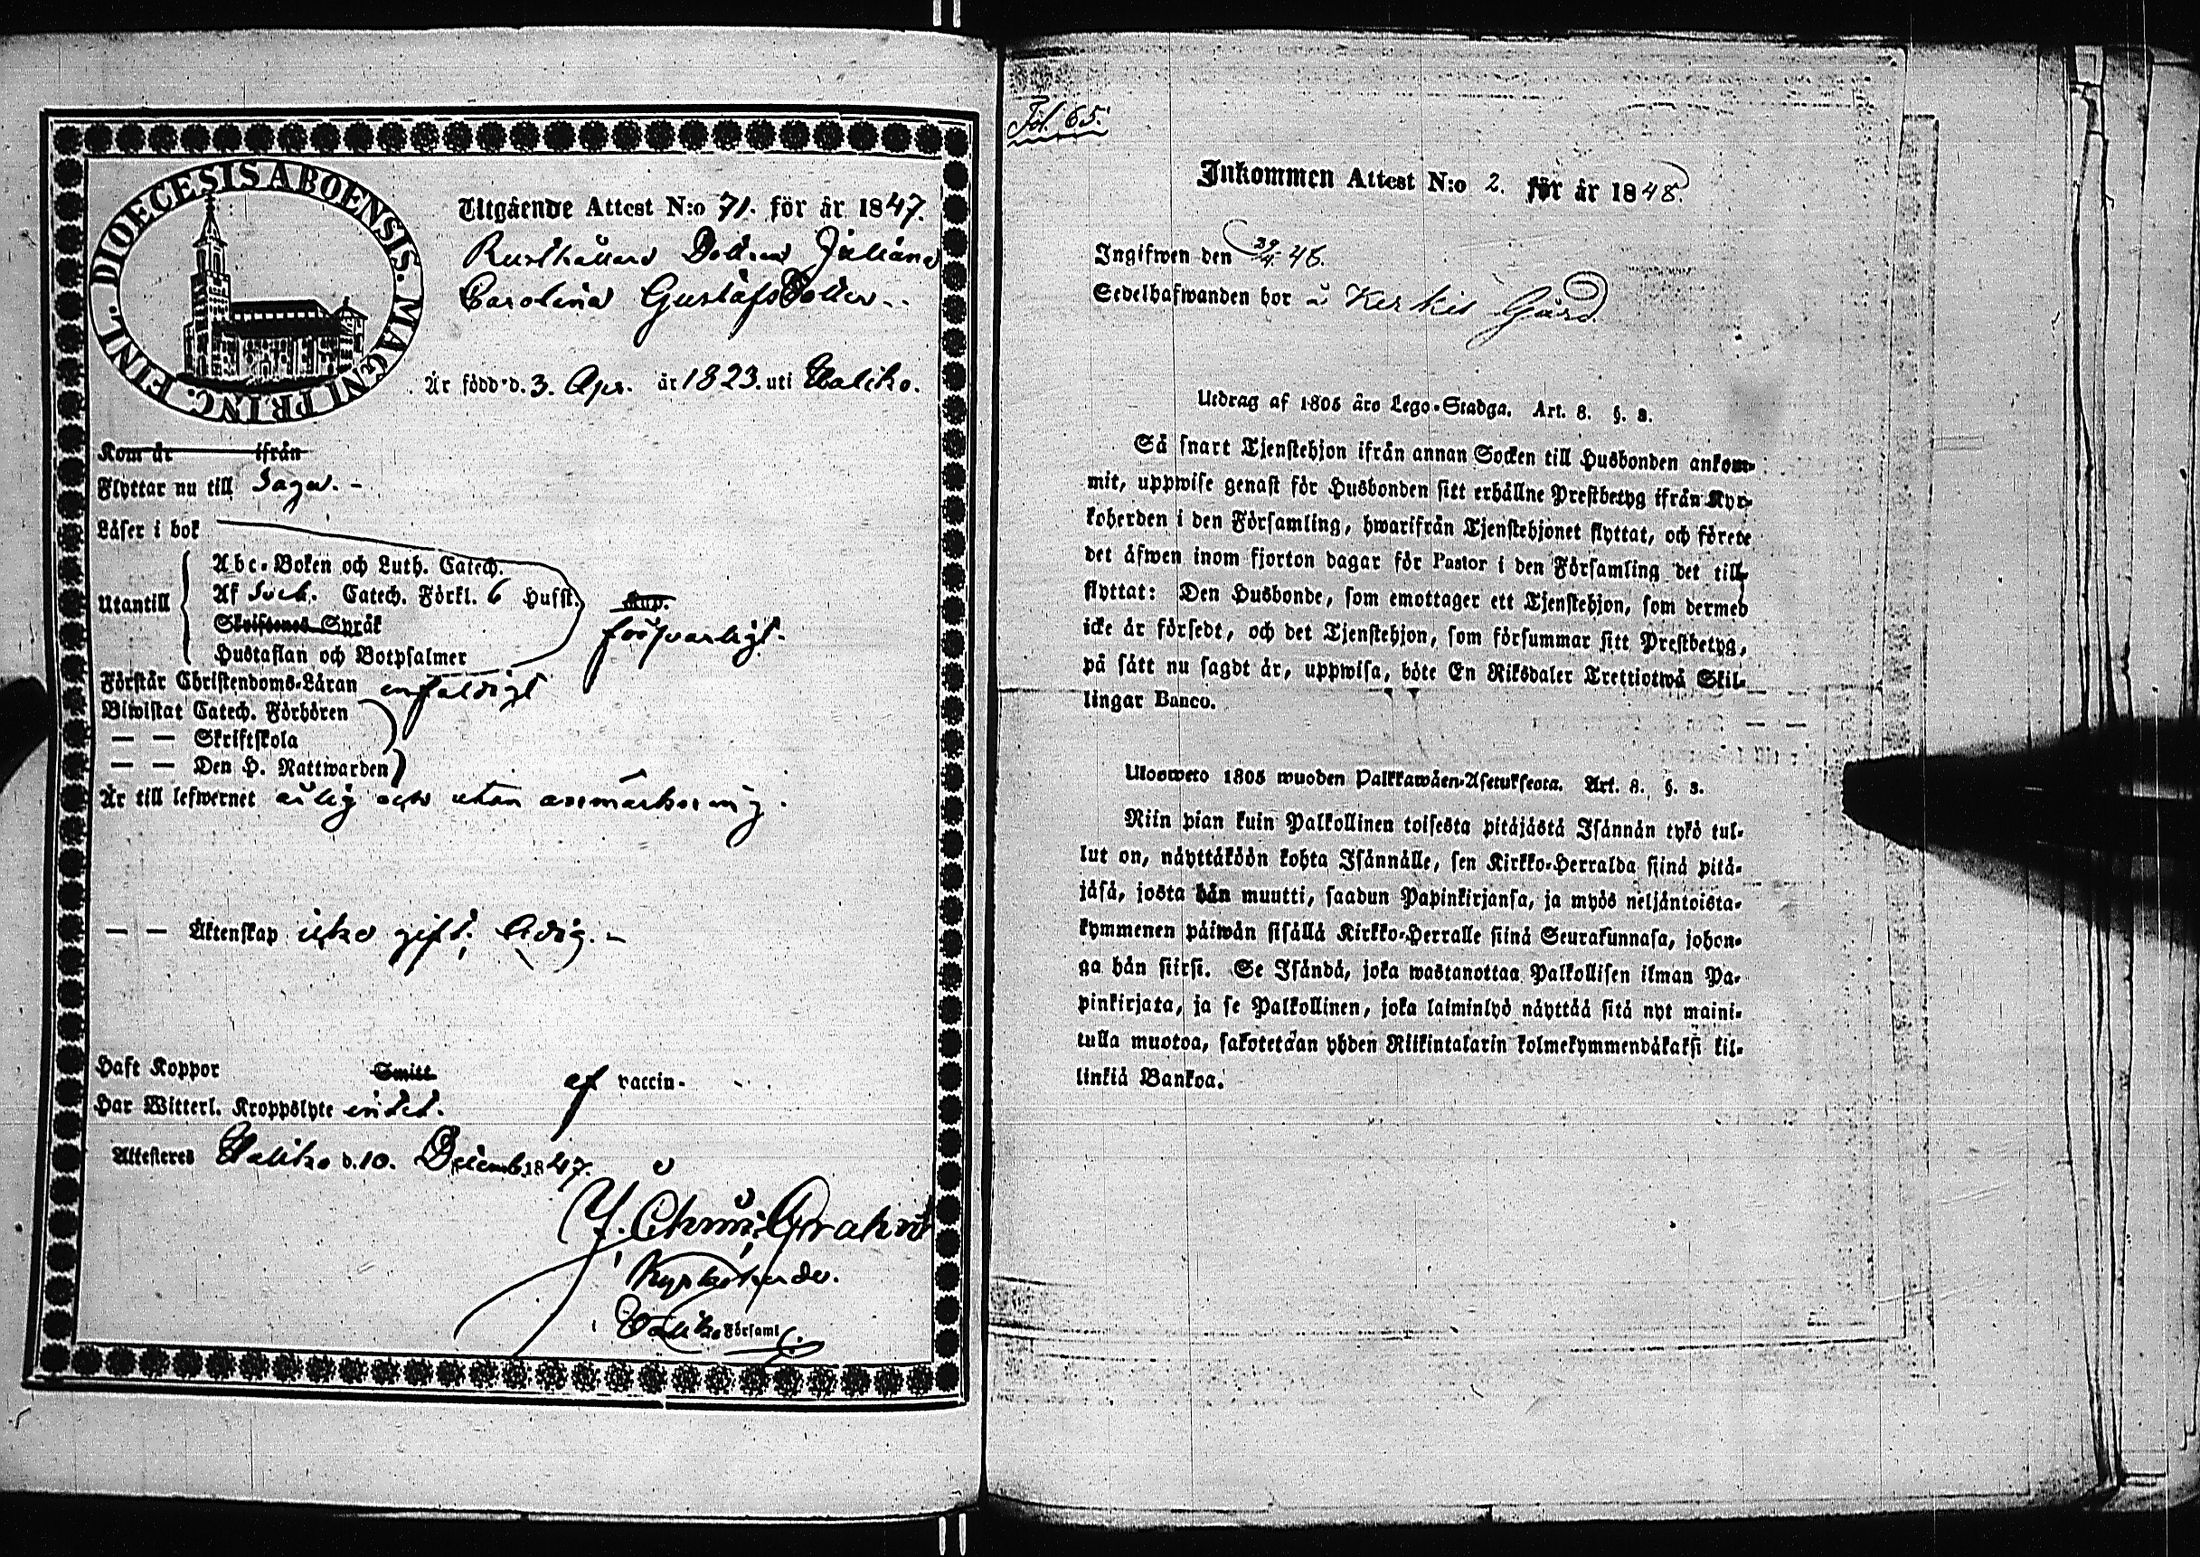 DIOECESIS ABOENSIS. MAGNI PRINC. FINL.
Utgående Attest N:o 71. för år 1847.
Rusthållare Dottren Juliana
Carolina Gustafsdotter.
Är född d. 3. Apr. år 1823. uti Haliko.
Kom år ifrån
Flyttar nu till Sagu. -
Läser i bok
Utantill
Abc-Boken och Luth. Catech.
Af Catech. Förkl. 6 Hufst.
Skriftenes Språk
försvarligt.
Hustaflan och Botpsalmer
Förstår Christendoms-Läran enfaldigt
Biwistat Catech. Förhören
— — Skriftskola
— — Den H. Nattwarden
Är till lefwernet ärlig och utan anmärkning.
— — Äktenskap icke gift; ledig. -
Haft Koppor Smitt af vaccin-
Har Witterl. Kroppslyte intet.
Attesteres Haliko d. 10. Decemb. 1847.
Grahn
Kyrkoherde.
i Haliko Församl.
Fol. 65.
Inkommen Attest N:o 2. för år 1848.
Ingifwen den 29/4 48.
Sedelhafwanden bor å Kerkis Gård.
Utdrag af 1805 års Lego-Stadga. Art. 8. §. 3.
Så snart Tjenstehjon ifrån annan Socken till Husbonden ankom-
mit, uppwise genast för Husbonden sitt erhållne Prestbetyg ifrån Kyr-
koherden i den Församling, hwarifrån Tjenstehjonet flyttat, och förete
det äfwen inom fjorton dagar för Pastor i den Församling det till-
flyttat: Den Husbonde, som emottager ett Tjenstehjon, som dermed
icke är försedt, och det Tjenstehjon, som försummar sitt Prestbetyg,
på sätt nu sagdt är, uppwisa, böte En Riksdaler Trettiotwå Skil-
lingar Banco.
Ulosweto 1805 wuoden Palkkawäen-Asetuksesta. Art. 8. §. 3.
Niin pian kuin Palkollinen toisesta pitäjästä Isännän tykö tul-
lut on, näyttäköön kohta Isännälle, sen Kirkko-Herralda siinä pitä-
jäsä, josta hän muutti, saadun Papinkirjansa, ja myös neljäntoista-
kymmenen päiwän sisällä Kirkko-Herralle siinä Seurakunnasa, johon-
ga hän siirsi. Se Isändä, joka wastanottaa Palkollisen ilman Pa-
pinkirjata, ja se Palkollinen, joka laiminlyö näyttää sitä nyt maini-
tulla muotoa, sakotetaan yhden Riikintalarin kolmekymmendäkaksi kil-
linkiä Bankoa.